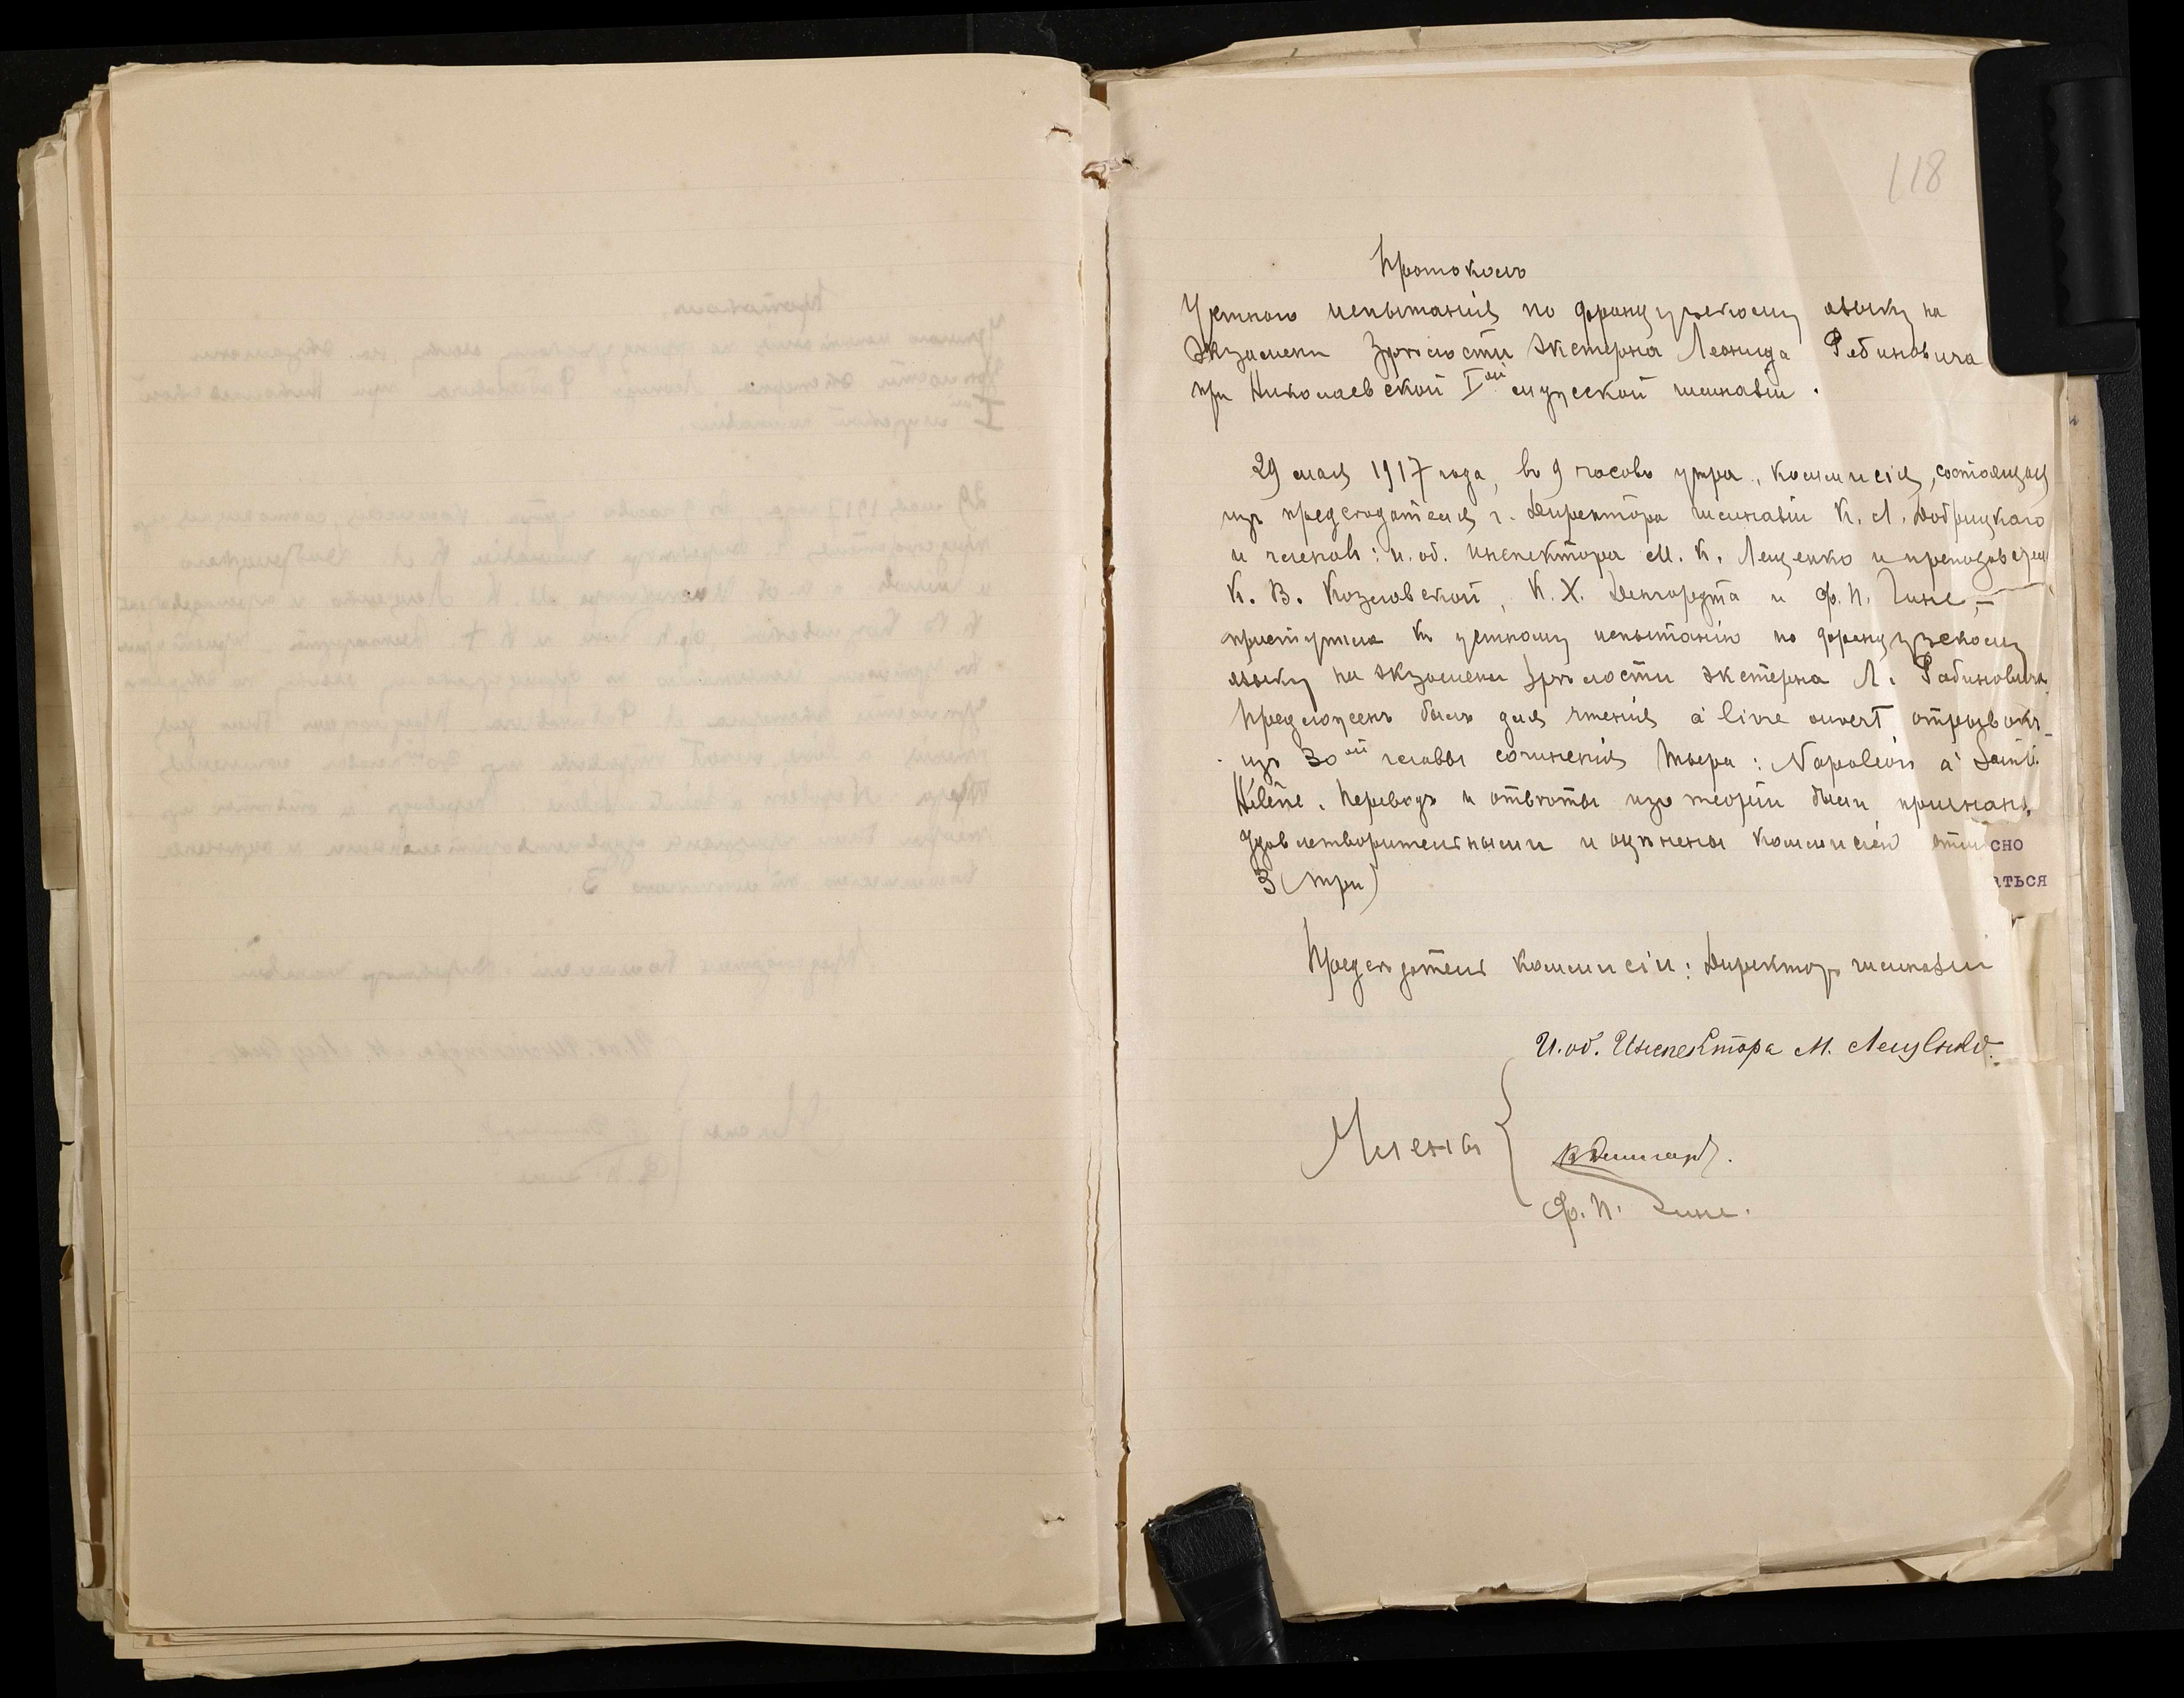 118
Протоколъ
Устнаго испытанія по французскому языку на
экзаменѣ зрѣлости экстерна Леонида Рабиновича
при Николаевской I ой мужской гимназіи.
29 мая 1917 года, въ 9 часовъ утра, комиссія, состоящая
изъ предсѣдателя г. Директора гимназіи К. Л. Добрицкаго
и членовъ: и. об. инспектора М. К. Лещенко и преподавателей
К. В. Козловской, К. Х. Денгардта и Ф. П. Гине, –
приступила къ устному испытанію по французскому
языку на экзаменѣ зрѣлости экстерна Л. Рабиновича.
Предложенъ былъ для чтенія à livre ouvert отрывокъ
изъ 30 ой главы сочиненія Тьера: Napoléon à Sainte
Hélène. Переводъ и отвѣты изъ теоріи были признаны
удовлетворительными и оцѣнены комиссіей
3 (три)
сно
аться
Предсѣдатель комиссіи: Директоръ гимназіи
И. об. Инспектора М. Лещенко.
Члены
Ф. П. Гине.